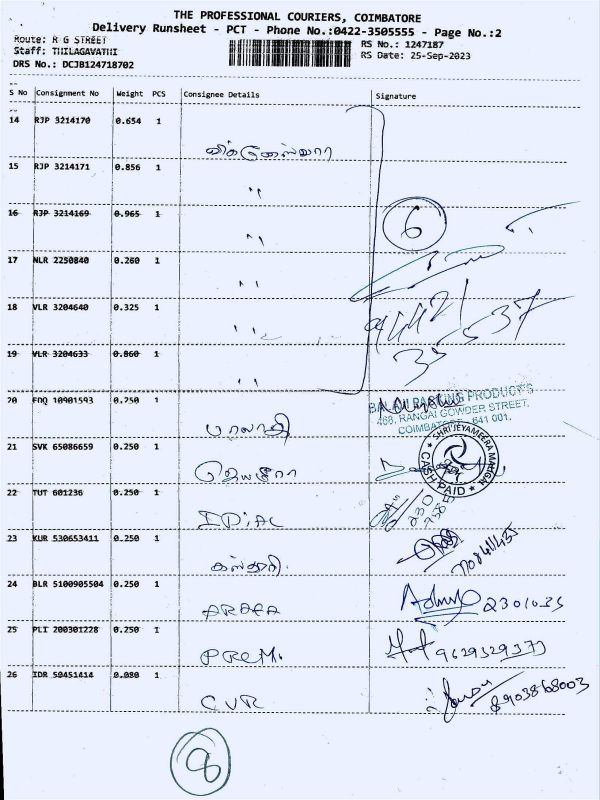 THE PROFESSIONAL COURIERS, COIMBATORE
Delivery Runsheet - PCT - Phone No.:0422-3505555 - Page No.:2
Route: R G STREET
RS No.: 1247187
Staff: THILAGAVATHI
RS Date: 25-Sep-2023
DRS No.: DCJB124718702
S No Consignment No Weight PCS Consignee Details Signature
14 RJP 3214170 0.654 1
விக்னேஸ்வரா
15 RJP 3214171 0.856 1
"
16 RJP 3214169 0.965 1
"
6
17 NLR 2250840 0.260 1
"
18 VLR 3204640 0.325 1
"
94421
35537
19 VLR 3204633 0.860 1
"
20 FDQ 10901593 0.250 1
பாலாஜி
BALAJI PACKING PRODUCT'S
468, RANGAI GOWDER STREET,
COIMBATORE - 641 001.
21 SVK 65086659 0.250 1
ஜெயமீரா
SHRI JEYAMEERA MANGAL
CASH PAID
22 TUT 601236 0.250 1
23 KUR 530653411 0.250 1
கஸ்தூரி.
24 BLR 5100905504 0.250 1
2301035
25 PLI 200301228 0.250 1
PREM.
9629529379
26 IDR 50451414 0.080 1
CVR
8903868003
8